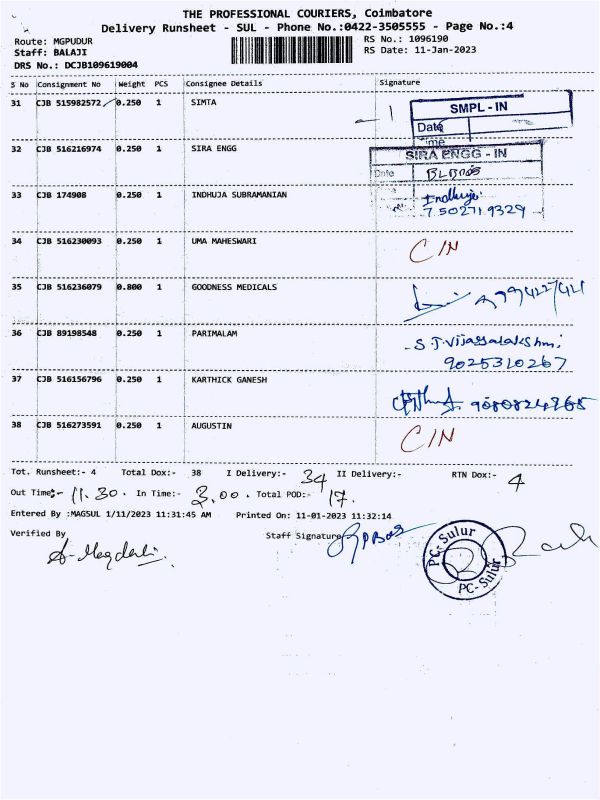 THE PROFESSIONAL COURIERS, Coimbatore
Delivery Runsheet - SUL - Phone No.:0422-3505555 - Page No.:4
Route: MGPUDUR
Staff: BALAJI
DRS No.: DCJB109619004
RS No.: 1096190
RS Date: 11-Jan-2023
S No Consignment No Weight PCS Consignee Details Signature
31 CJB 515982572 0.250 1 SIMTA
SMPL - IN
Date
32 CJB 516216974 0.250 1 SIRA ENGG
SIRA ENGG - IN
Date
33 CJB 174908 0.250 1 INDHUJA SUBRAMANIAN
Indhuja
7502719329
34 CJB 516230093 0.250 1 UMA MAHESWARI C/N
35 CJB 516236079 0.800 1 GOODNESS MEDICALS
36 CJB 89198548 0.250 1 PARIMALAM
S.J.Vijayalakshmi
9025310267
37 CJB 516156796 0.250 1 KARTHICK GANESH
38 CJB 516273591 0.250 1 AUGUSTIN C/N
Tot. Runsheet:- 4 Total Dox:- 38 I Delivery:- 34 II Delivery:- RTN Dox:- 4
Out Time:- 11.30. In Time:- 3.00. Total POD:- 17.
Entered By :MAGSUL 1/11/2023 11:31:45 AM Printed On: 11-01-2023 11:32:14
Verified By Staff Signature
PC-Sulur
PC-Sulur